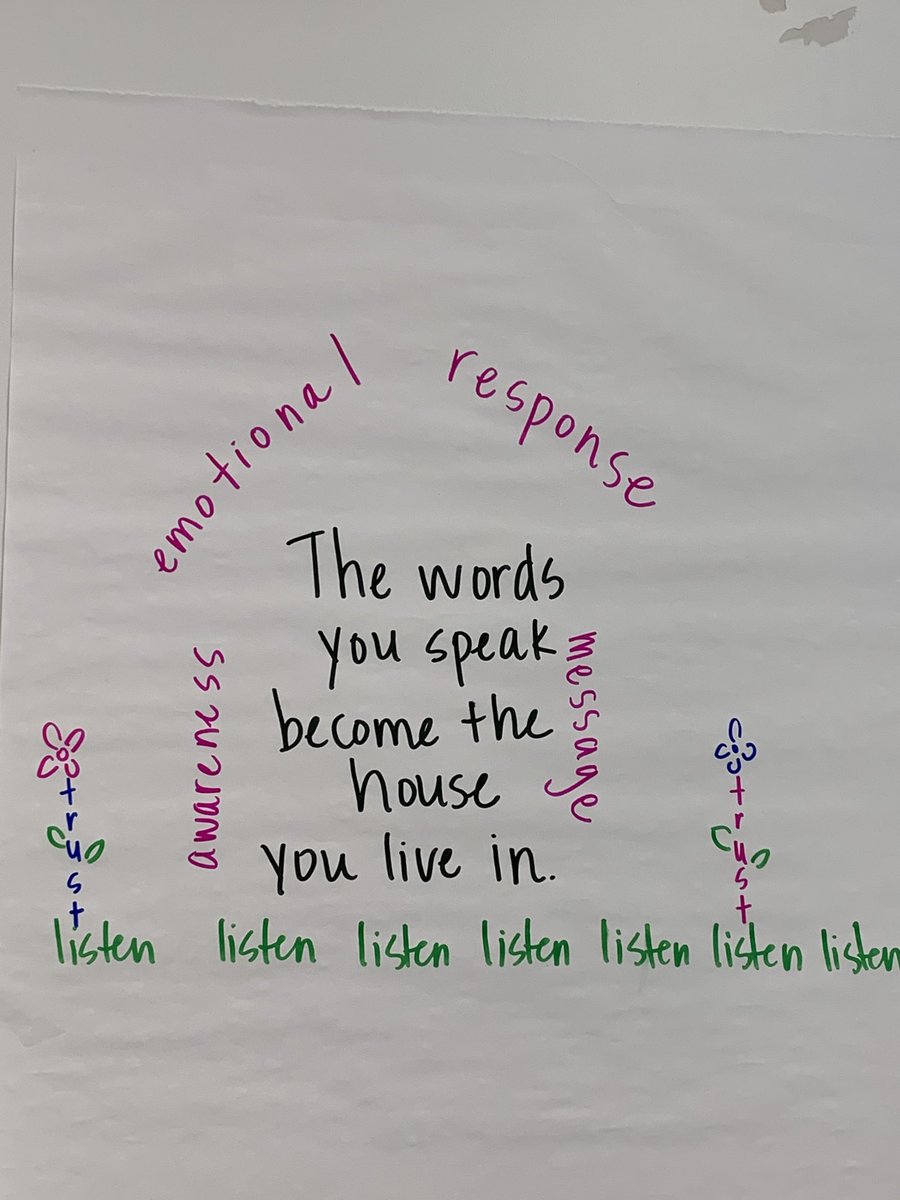 emotional response
The words
you speak
become the
house
you live in.
awareness
message
trust
trust
listen listen listen listen listen listen listen